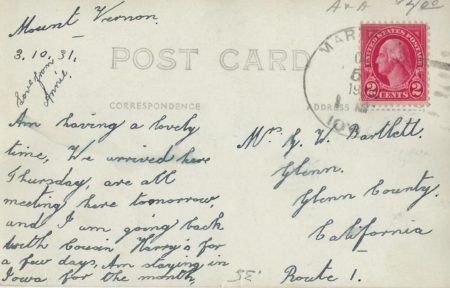 Mount Vernon.
3.10.31.
Love from
Annie.
POST CARD
CORRESPONDENCE
ADDRESS
Am having a lovely
time, We arrived here
Thursday, are all
meeting here tomorrow,
and I am going back
with Cousin Harry's for
a few days. Am staying in
Iowa for the month,
A & A
MAR
UNITED STATES POSTAGE
2 CENTS 2
Mrs G. W. Bartlett.
Glenn.
Glenn County.
California
Route 1.